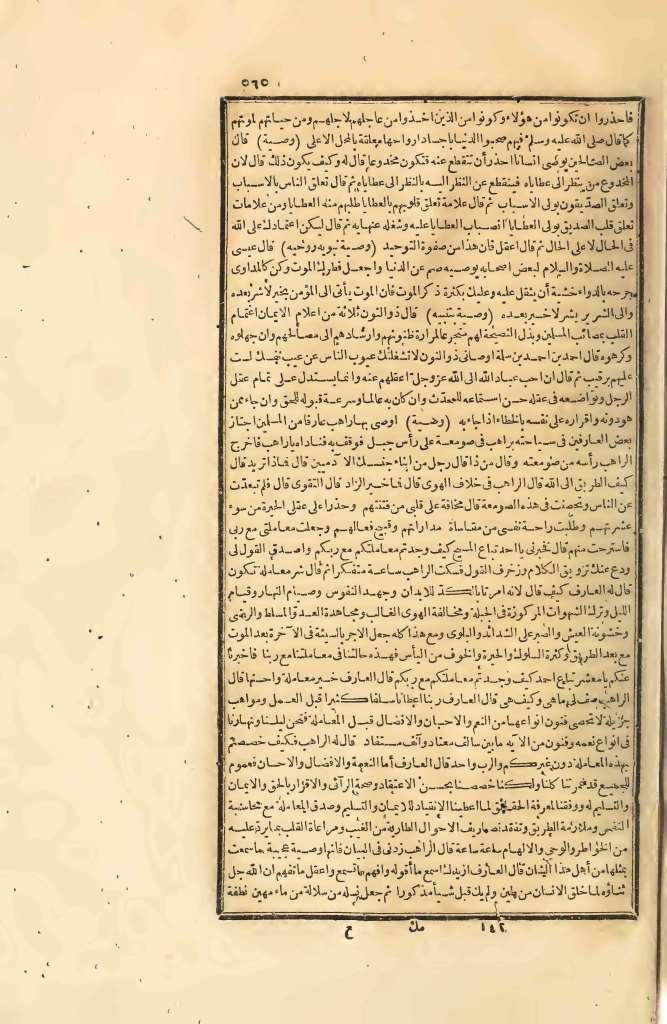 ٥٦٥
فاحذروا ان تكونوا من هؤلاء وكونوا من الذين اخذوا من عاجلهم لاجلهم ومن حياتهم لموتهم
كما قال صلى الله عليه وسلم فيهم صحبوا الدنيا باجساد ارواحها معلقة بالمحل الاعلى (وصية) قال
بعض الصالحين يوصى انسانا احذر أن تنقطع عنه فتكون مخدوعا قال له وكيف يكون ذلك قال لان
المخدوع من ينظر الى عطاياه فينقطع عن النظر اليه بالنظر الى عطاياه ثم قال تعلق الناس بالاسباب
وتعلق الصديقون بولى الاسباب ثم قال علامة تعلق قلوبهم بالعطايا طلبهم منه العطايا ومن علامات
تعلق قلب الصديق بولى العطايا انصباب العطايا عليه وشغله عنها به ثم قال ليكن اعتمادك على الله
فى الحال لا على الحال ثم قال اعقل فان هذا من صفوة التوحيد (وصية نبويه روحيه) قال عيسى
عليه الصلاة والسلام لبعض اصحابه يوصيه صم عن الدنيا واجعل فطرك الموت وكن كالمداوى
جرحه بالدواء خشية أن ينغل عليه وعليك بكثرة ذكر الموت فان الموت يأتى الى المؤمن بخير لا شر بعده
والى الشرير بشر لا خير بعده (وصية تنبيه) قال ذو النون ثلاثة من اعلام الايمان اغتمام
القلب بمصائب المسلمين وبذل النصيحة لهم متجرعا لمرارة ظنونهم وارشادهم الى مصالحهم وان جهلوه
وكرهوه قال احمد بن احمد بن سلمة اوصانى ذو النون لا تشغلنك عيوب الناس عن عيب نفسك لست
عليهم برقيب ثم قال ان احب عباد الله الى الله عز وجل اعقلهم عنه وانما يستدل على تمام عقل
الرجل وتواضعه فى عقله حسن استماعه للمحدث وان كان به عالما وسرعة قبوله للحق وان جاء ممن
هو دونه واقراره على نفسه بالخطاء اذا جاء به (وصية) اوصى بها راهب عارفا من المسلمين اجتاز
بعض العارفين فى سياحته براهب فى صومعة على رأس جبل فوقف به فناداه يا راهب فاخرج
الراهب رأسه من صومعته وقال من ذا قال رجل من ابناء جنسك الآدميين قال فماذا تريد قال
كيف الطريق الى الله قال الراهب فى خلاف الهوى قال فما خير الزاد قال التقوى قال فلم تبعدت
عن الناس وتحصنت فى هذه الصومعة قال مخافة على قلبى من فتنتهم وحذرا على عقلى الحيرة من سوء
عشرتهم وطلبت راحة نفسى من مقاساة مداراتهم وقبيح فعالهم وجعلت معاملتى مع ربى
فاسترحت منهم قال فخبرنى يا احد تباع المسيح كيف وجدتم معاملتكم مع ربكم واصدق القول لى
ودع عنك تزويق الكلام وزخرف القول فسكت الراهب ساعة متفكرا ثم قال شر معاملة تكون
قال له العارف كيف قال لانه امرنا بالكد للابدان وجهد النفوس وصيام النهار وقيام
الليل وترك الشهوات المركوزة فى الجبلة ومخالفة الهوى الغالب ومجاهدة العدو المسلط والرضى
وخشونة العيش والصبر على الشدائد والبلوى ومع هذا كله جعل الاجر بالنسيئة فى الآخرة بعد الموت
مع بعد الطريق وكثرة الشكوك والحيرة والخوف من اليأس فهذه حالتنا فى معاملتنا مع ربنا فاخبرنا
عنكم يا معشر تباع احمد كيف وجدتم معاملتكم مع ربكم قال العارف خير معاملة واحسنها قال
الراهب صف لى ماهى وكيف هى قال العارف ربنا اعطانا سلفا كثيرا قبل العمل ومواهب
جزيلة لا تحصى فنون انواعها من النعم والاحسان والافضال قبل المعاملة فنحن ليلنا ونهارنا
فى انواع نعمه وفنون من آلائه ما بين سالف معتاد وآنف مستفاد قال له الراهب فكيف خصصتم
بهذه المعاملة دون غيركم والرب واحد قال العارف أما النعمة والافضال والاحسان فعموم
للجميع قد غمرتنا كلنا ولكنا خصصنا بحسن الاعتقاد وصحة الرأى والاقرار بالحق والايمان
والتسليم له ووفقنا لمعرفة الحقائق لما اعطينا الانقياد للايمان والتسليم وصدق المعاملة مع محاسبة
النفس وملازمة الطريق وتفقد تصاريف الاحوال الطارية من الغيب ومراعاة القلب بما يرد عليه
من الخواطر والوحى والالهام ساعة ساعة قال الراهب زدنى فى البيان فانها وصية عجيبة ما سمعت
بمثلها من أهل هذا الشان قال العارف ازيدك اسمع ما أقوله وافهم ما تسمع واعقل ما تفهم ان الله جل
ثناؤه لما خلق الانسان من طين ولم يك قبل شيأ مذكورا ثم جعل نسله من سلالة من ماء مهين نطفة
١٤٢ مك ع